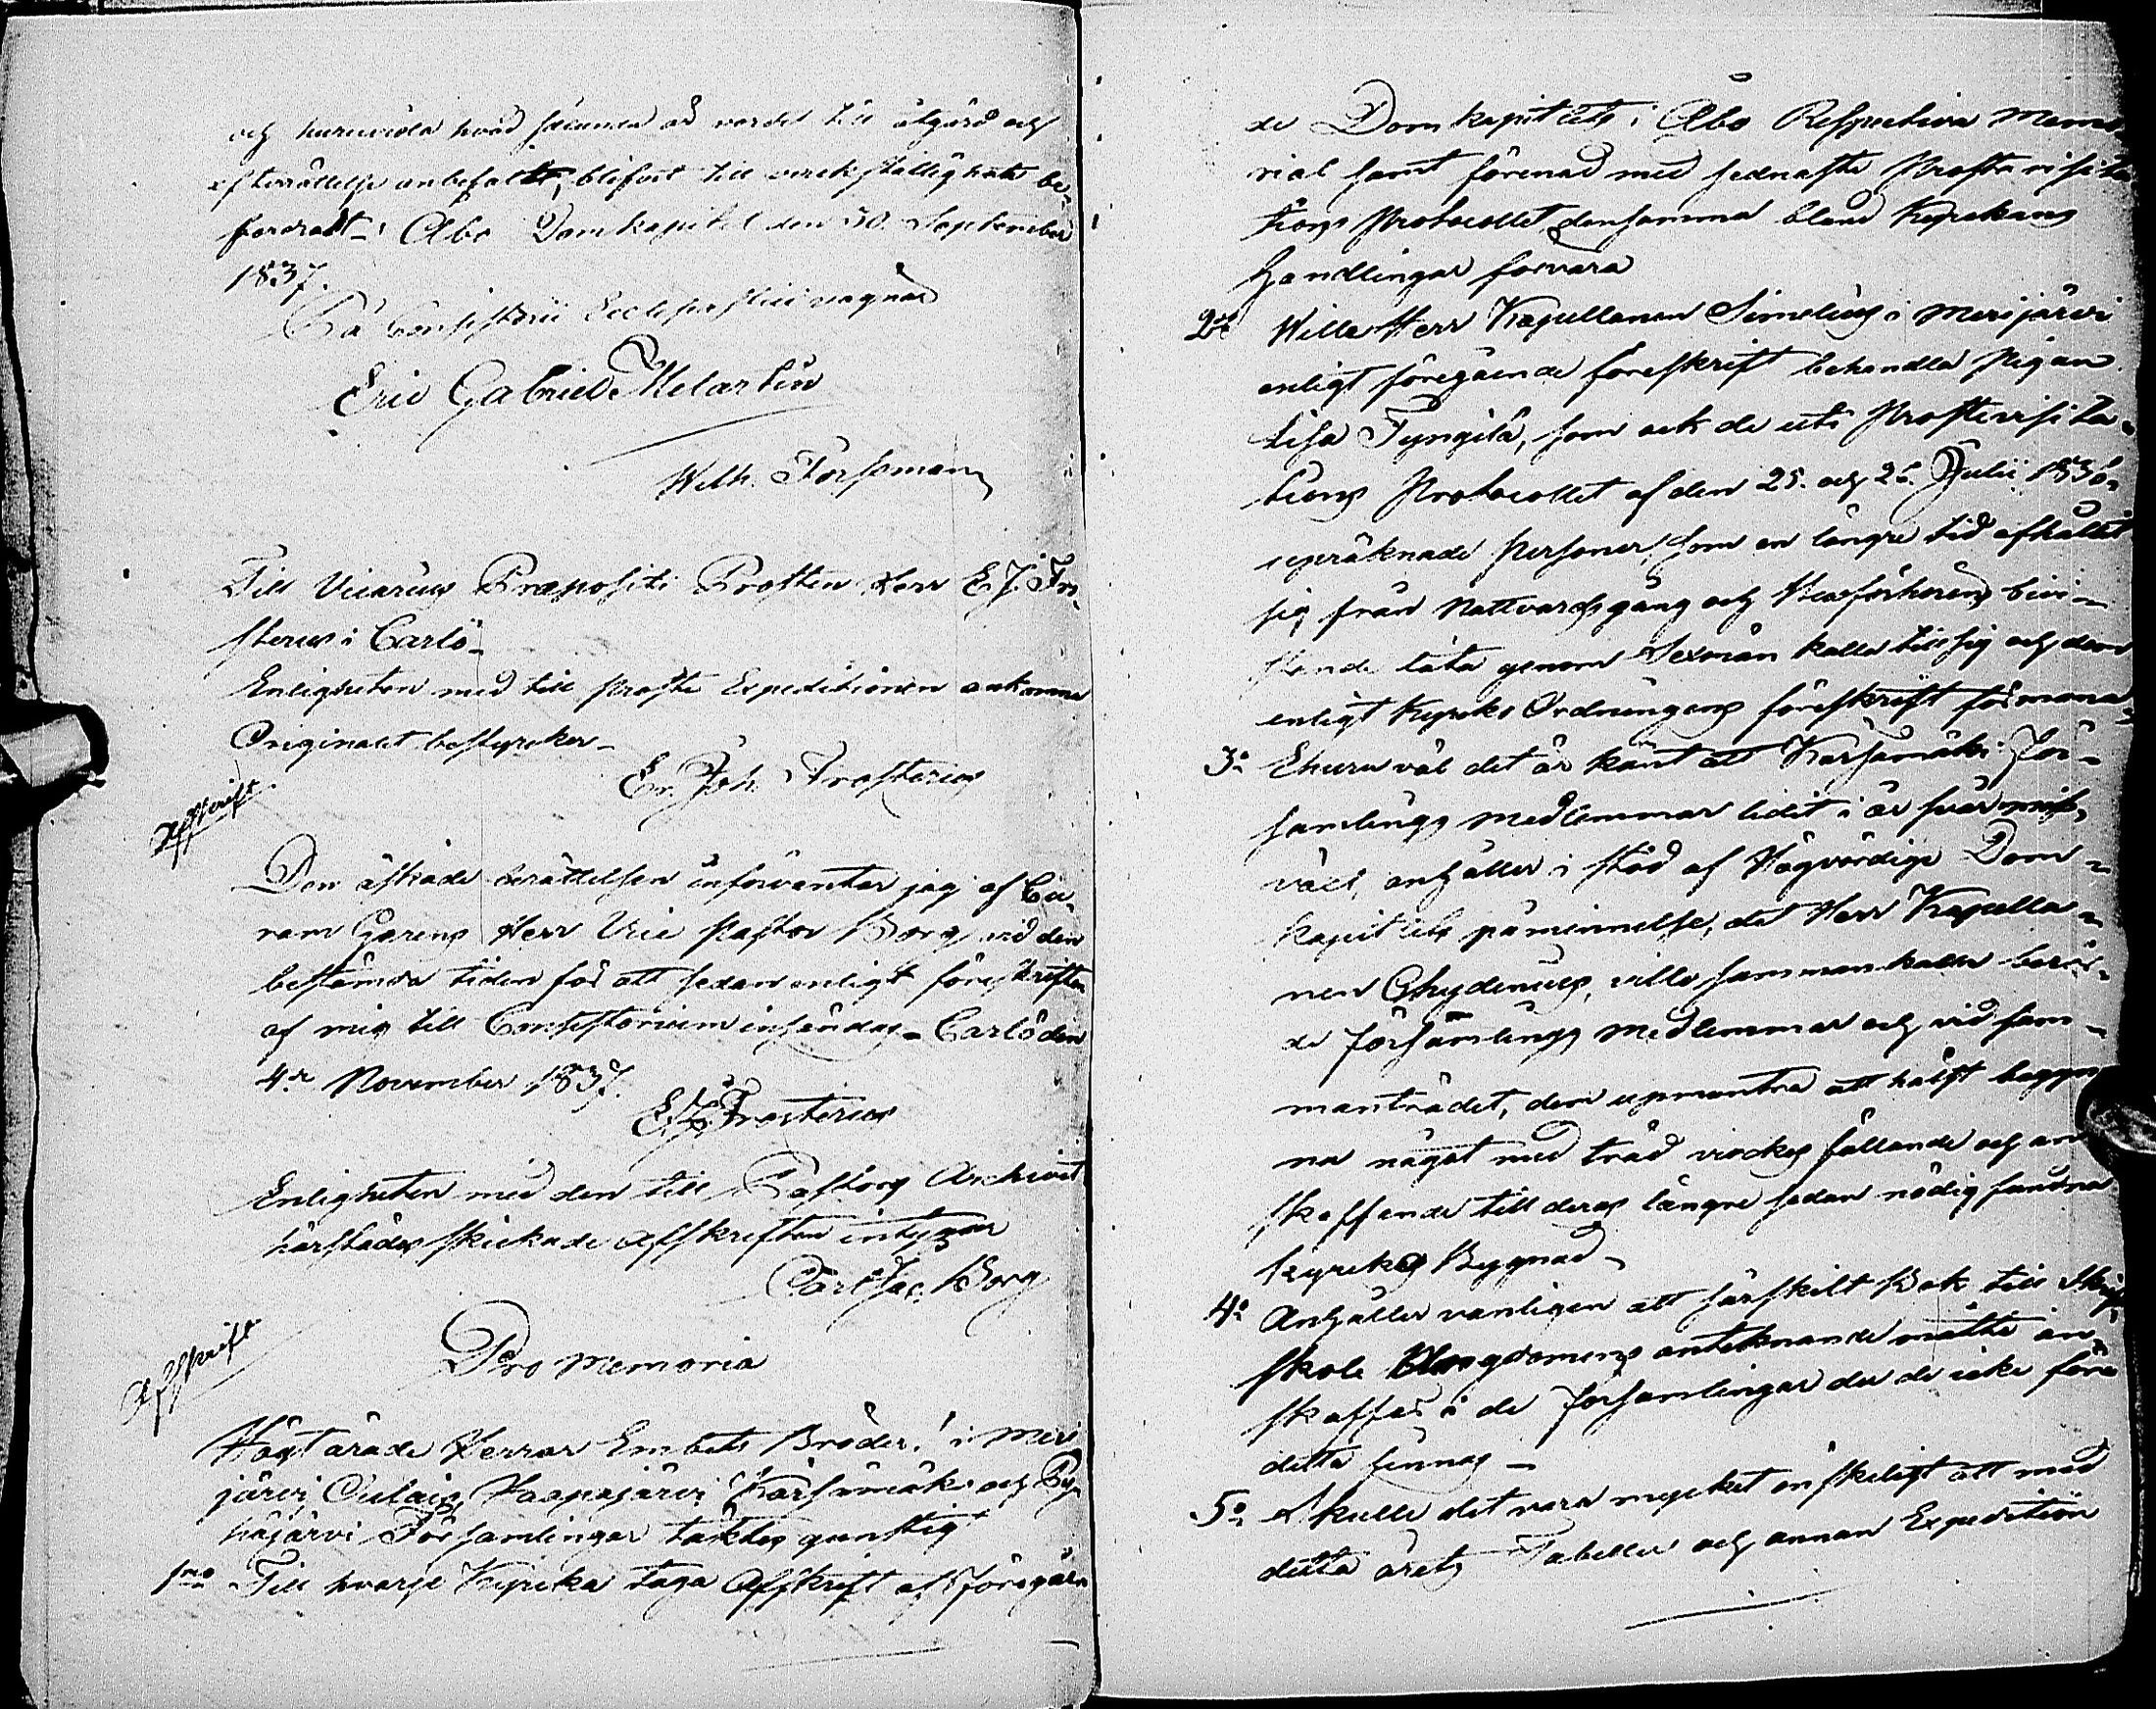 och huruvida hvad sålunda är vordet till åtgärd och
efterrättelse anbefalt, blifvit till verkställighet be-
fordradt. Åbo Domkapitel den 30. September
1837.
På Consistorii Ecclesiastici vägnar
Eric Gabriel Melartin
Wilh. Forssman
Till Vicarius Præpositi Prosten Herr E. J. Fro-
sterus i Carlö.
Enligheten med till Proste Expeditionen ankomna
Originalet bestyrcker.
Er. Joh. Frosterus
Afskrift
Den äskade berättelsen införväntar jag af Cu-
ram Gerens Herr Vice Pastor Borg vid den
bestämda tiden för att sedan enligt föreskriften
af mig till Consistorium insändas. Carlö den
4de November 1837.
E. J. Frosterus
Enligheten med den till Pastors Archivet
härstädes skickade afskriften intygar
Carl Jac. Borg
Afskrift
Pro Memoria
Högtärade Herrar Embets Bröder! i Meri
järvi, Oulais, Haapajärvi, Kärsämäki och Py-
häjärvi Församlingar täktes gunstigt
1mo Till hvarje Kyrcka taga Afskrift af föregåen
de Domkapitlets i Åbo Respective Memo-
rial samt förenad med sednaste Prosta visita
tions Protocollet densamma bland Kyrckans
Handlingar förvara
2do Wille Herr Kapellanen Simelius i Merijärvi
enligt föregående föreskrift behandla Pigan
Lisa Tyngilä, som ock de uti Prostevisita-
tions Protocollet af den 25. och 26. Julii 1836.
upräknade Personer, som en längre tid afhållit
sig från Nattvardsgång och Läsförhören bevi-
stande låta genom Sexman kalla till sig och dem
enligt Kyrcko Ordningens föreskrift förmana.
3o Ehuru väl det är känt att Kärsämäki För-
samlings medlemmar lidit i år svår miss-
växt, anhåller i stöd af Högvördige Dom-
kapitlets påminnelse, det Herr Kapella-
nen Chydenius, ville sammankalla berör-
de församlings medlemmar och vid sam-
manträdet, dem upmuntra att hälst begyn
na något med träd virckes fällande och an
skaffande till deras längre sedan nödig fundna
Kyrckas Bygnad.
4o Anhåller vänligen att särskilt Bok till Skrift
skole Ungdomens antecknande måtte an-
skaffas i de församlingar der de icke före
detta finnas.
5o Skulle det vara mycket önskeligt att med
detta årets Tabeller och annan Expedition